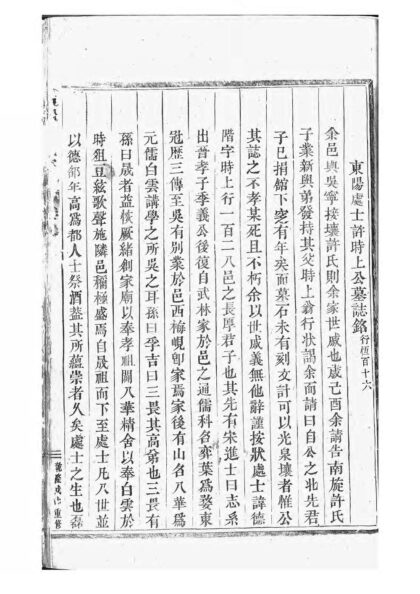 東陽處士許時上公墓誌銘 行恆百十六
余邑與吳寧接壤許氏則余家世戚也歲己酉余請告南旋許氏
子業新與弟發持其父時上翁行狀謁余而請曰自公之北先君
子已捐館下窆有年矣而墓石未有刻文計可以光泉壤者惟公
其誌之不孝某死且不朽余以世戚義無他辭謹按狀處士諱德
階字時上行一百二八邑之長厚君子也其先有宋進士曰志系
出晉孝子季義公後復自武林家於邑之通儒科名奕葉爲婺東
冠歷三傳至吳有別業於邑西梅峴卽家焉家後有山名八華爲
元儒白雲講學之所吳之耳孫曰孚吉曰三畏其高弟也三畏有
孫曰晟者益恢厥緒創家廟以奉孝祖闢八華精舍以奉白雲於
時俎豆絃歌聲施隣邑稱極盛焉自晟祖而下至處士凡八世並
以德邵年高爲都人士祭酒蓋其所蘊崇者久矣處士之生也磊
重修